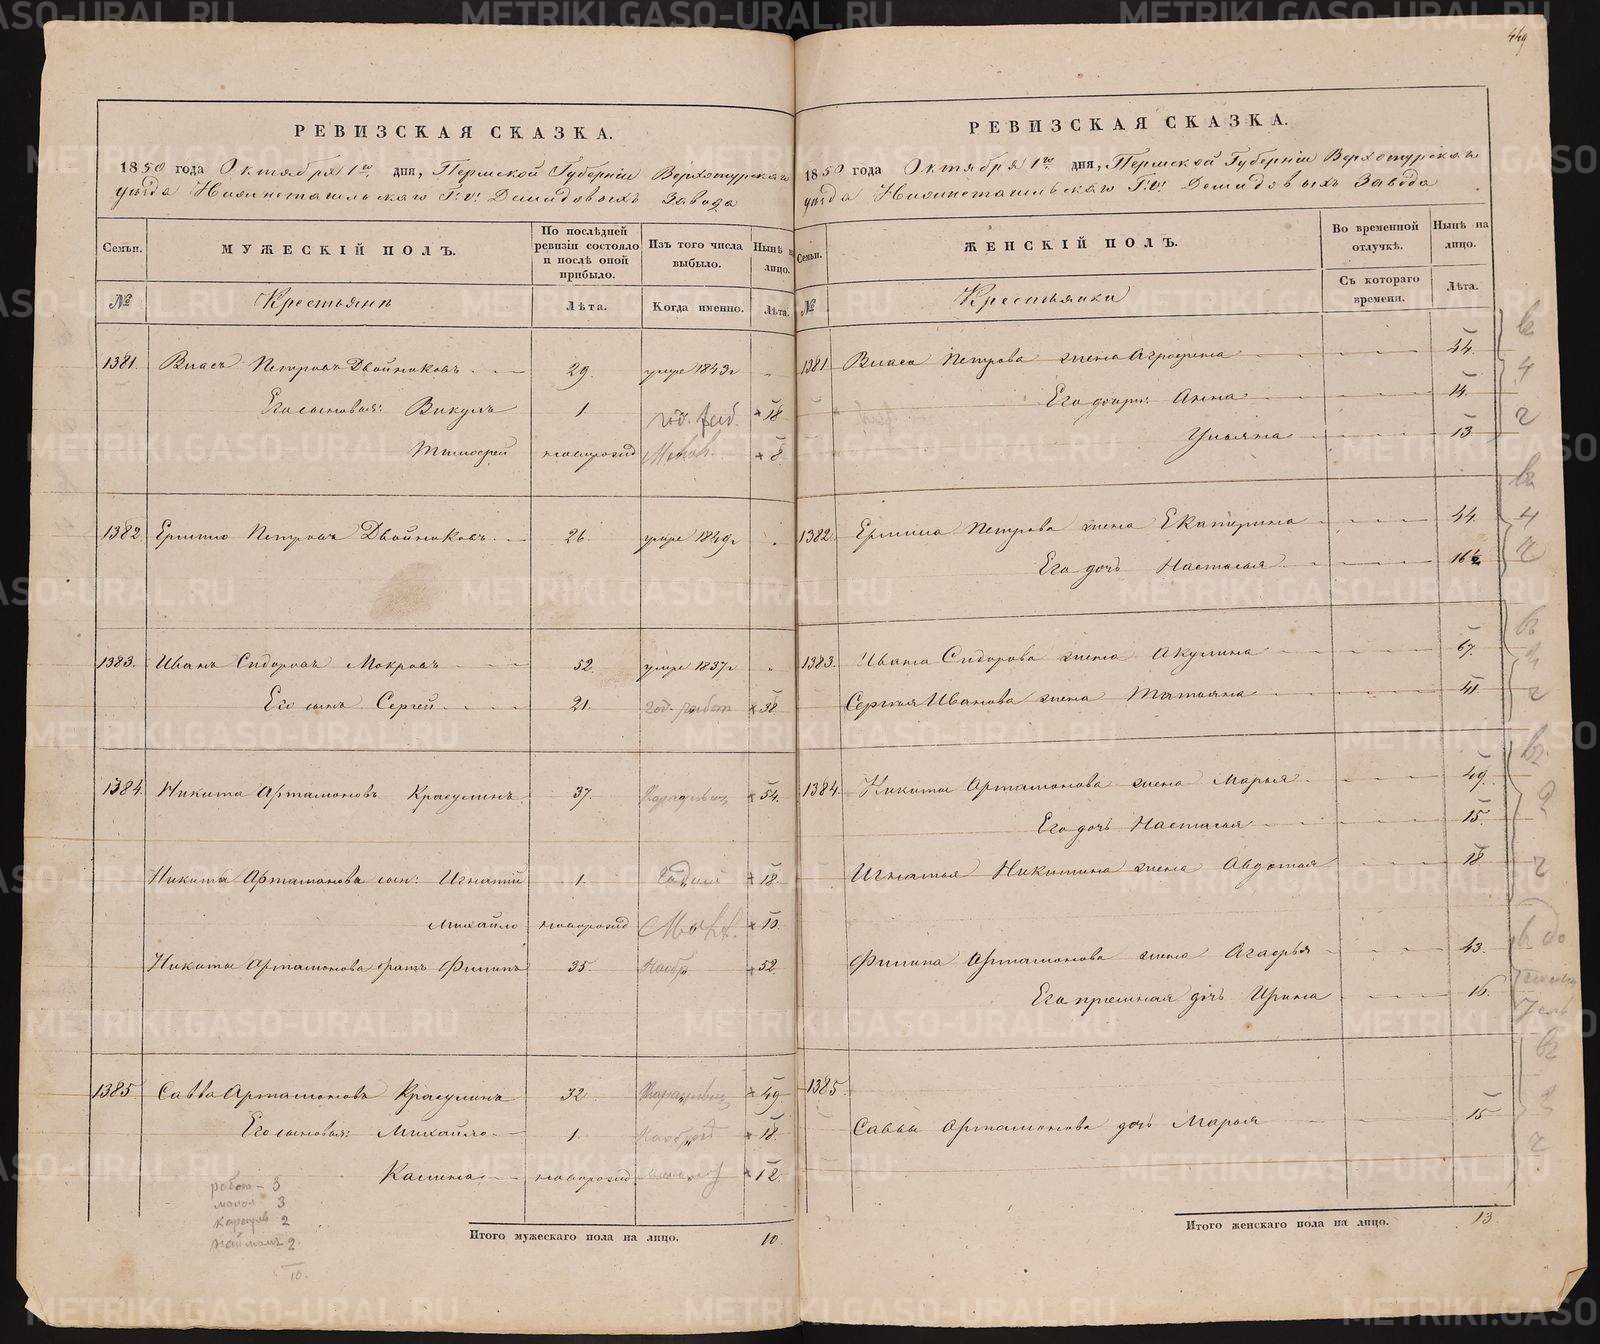 449
РЕВИЗСКАЯ СКАЗКА.
1850 года Октября 1го дня, Пермской Губернiи Верхотурскаго
уѣзда Нижнетагильскаго Г.г. Демидовыхъ Завода
Семьи. МУЖЕСКІЙ ПОЛЪ. По послѣдней ревизіи состояло и послѣ оной прибыло. Изъ того числа выбыло. Нынѣ на лицо.
№ Крестьянъ Лѣта. Когда именно. Лѣта.
1381. Власъ Петровъ Двойниковъ 29. умре 1843г
Его сыновья: Викулъ 1. год. раб. 18
Тимофей новорожд 8.
1382. Ермилъ Петровъ Двойниковъ 26. умре 1849г
1383. Иванъ Сидоровъ Мокровъ 52 умре 1837г
Его сынъ Сергей 21. год. работ 38
1384. Никита Артамоновъ Красулинъ 37. 54.
Никиты Артамонова сын: Игнатiй 1. 18.
Михайло новорожд 10.
Никиты Артамонова братъ Филипъ 35. 52.
1385 Савва Артамоновъ Красулинъ 32 49.
Его сыновья: Михайло 1. 18.
Калина новорожд. 12.
работ - 3
малол 3
2
2.
10.
Итого мужескаго пола на лицо. 10.
РЕВИЗСКАЯ СКАЗКА.
1850 года Октября 1го дня, Пермской Губернiи Верхотурскаго
уѣзда Нижнетагильскаго Г.г. Демидовыхъ Завода
Семьи. ЖЕНСКІЙ ПОЛЪ. Во временной отлучкѣ. Нынѣ на лицо.
№ Крестьянки Съ котораго времени. Лѣта.
1381 Власа Петрова жена Аграфена 44.
Его дочери: Анна 14.
Ульяна 13.
1382 Ермила Петрова жена Екатерина 44.
Его дочь Настасья 16½
1383. Ивана Сидорова жена Акулина 67.
Сергея Иванова жена Татьяна 41.
1384. Никиты Артамонова жена Марья 49.
Его дочь Настасья 15.
Игнатья Никитина жена Авдотья 18
Филипа Артамонова жена Агафья 43.
Его прiемная дочь Ирина 16.
1385.
Саввы Артамонова дочь Марья 15
Итого женскаго пола на лицо. 13.
METRIKI.GASO-URAL.RU